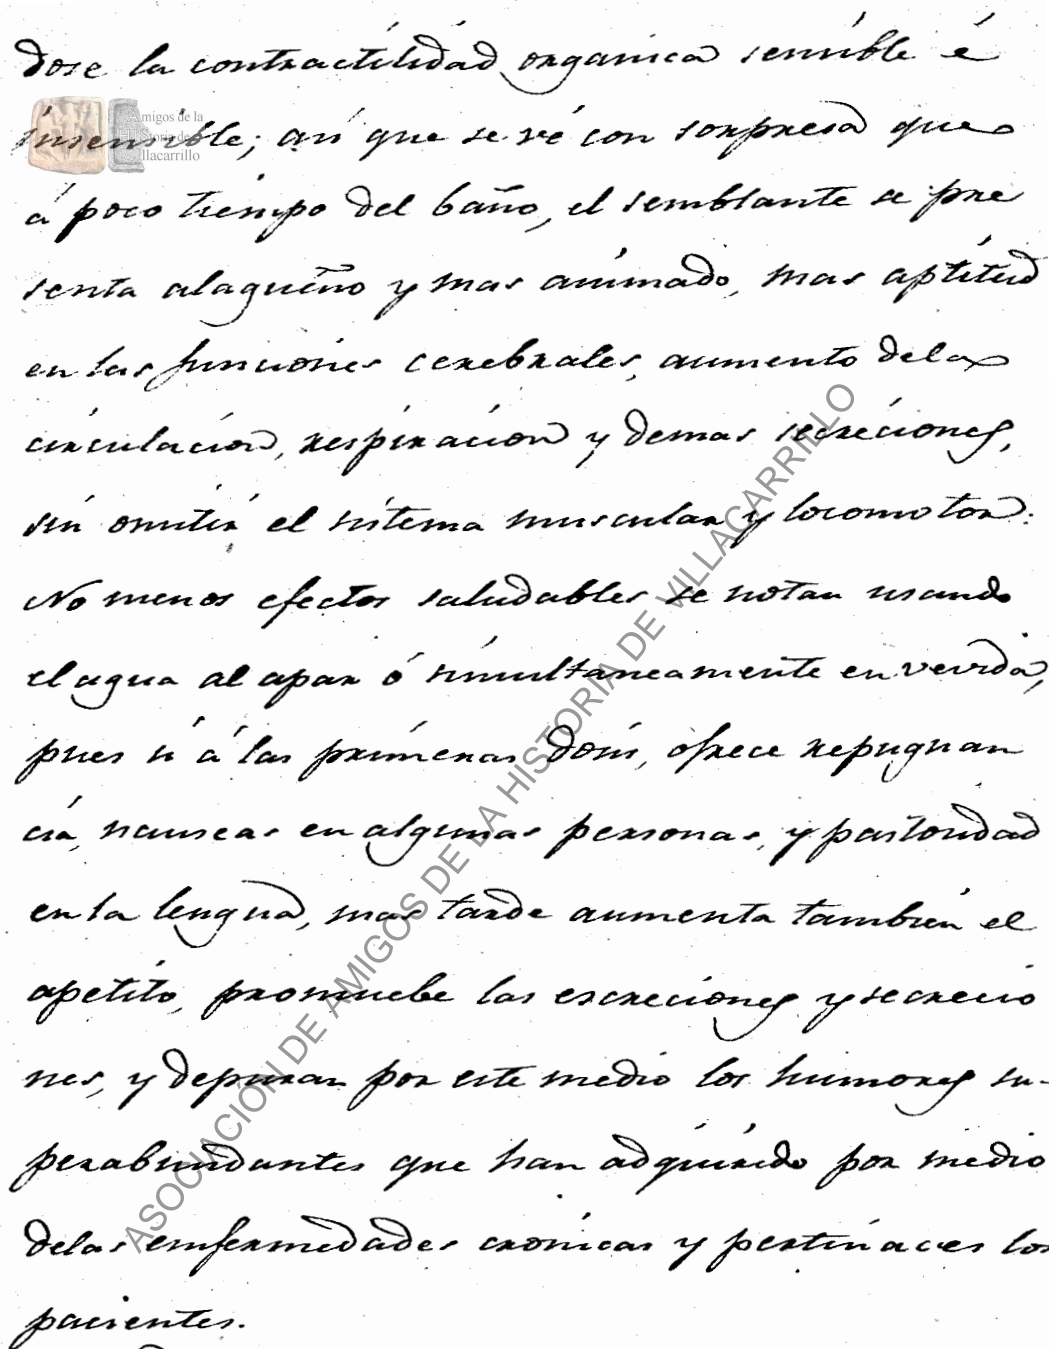 dose la contractilidad organica sensible é
insensible; así que se vé con sorpresa que
á poco tiempo del baño, el semblante se pre
senta alagueño y mas animado, mas aptitud
en las funciones cerebrales, aumento dela
circulacion, respiracion y demas secreciones,
sin omitir el sistema muscular y locomotor:
No menos efectos saludables se notan usando
el agua al apar ó simultaneamente en vevida,
pues si á las primeras dosis, ofrece repugnan
cia, nauseas en algunas personas, y pastosidad
en la lengua, mas tarde aumenta tambien el
apetito, promuebe las escreciones y secrecio
nes, y depuran por este medio los humores su-
perabundantes que han adquirido por medio
delas enfermedades cronicas y pertinaces los
pacientes.
Amigos de la
Historia de
Villacarrillo
ASOCIACIÓN DE AMIGOS DE LA HISTORIA DE VILLACARRILLO